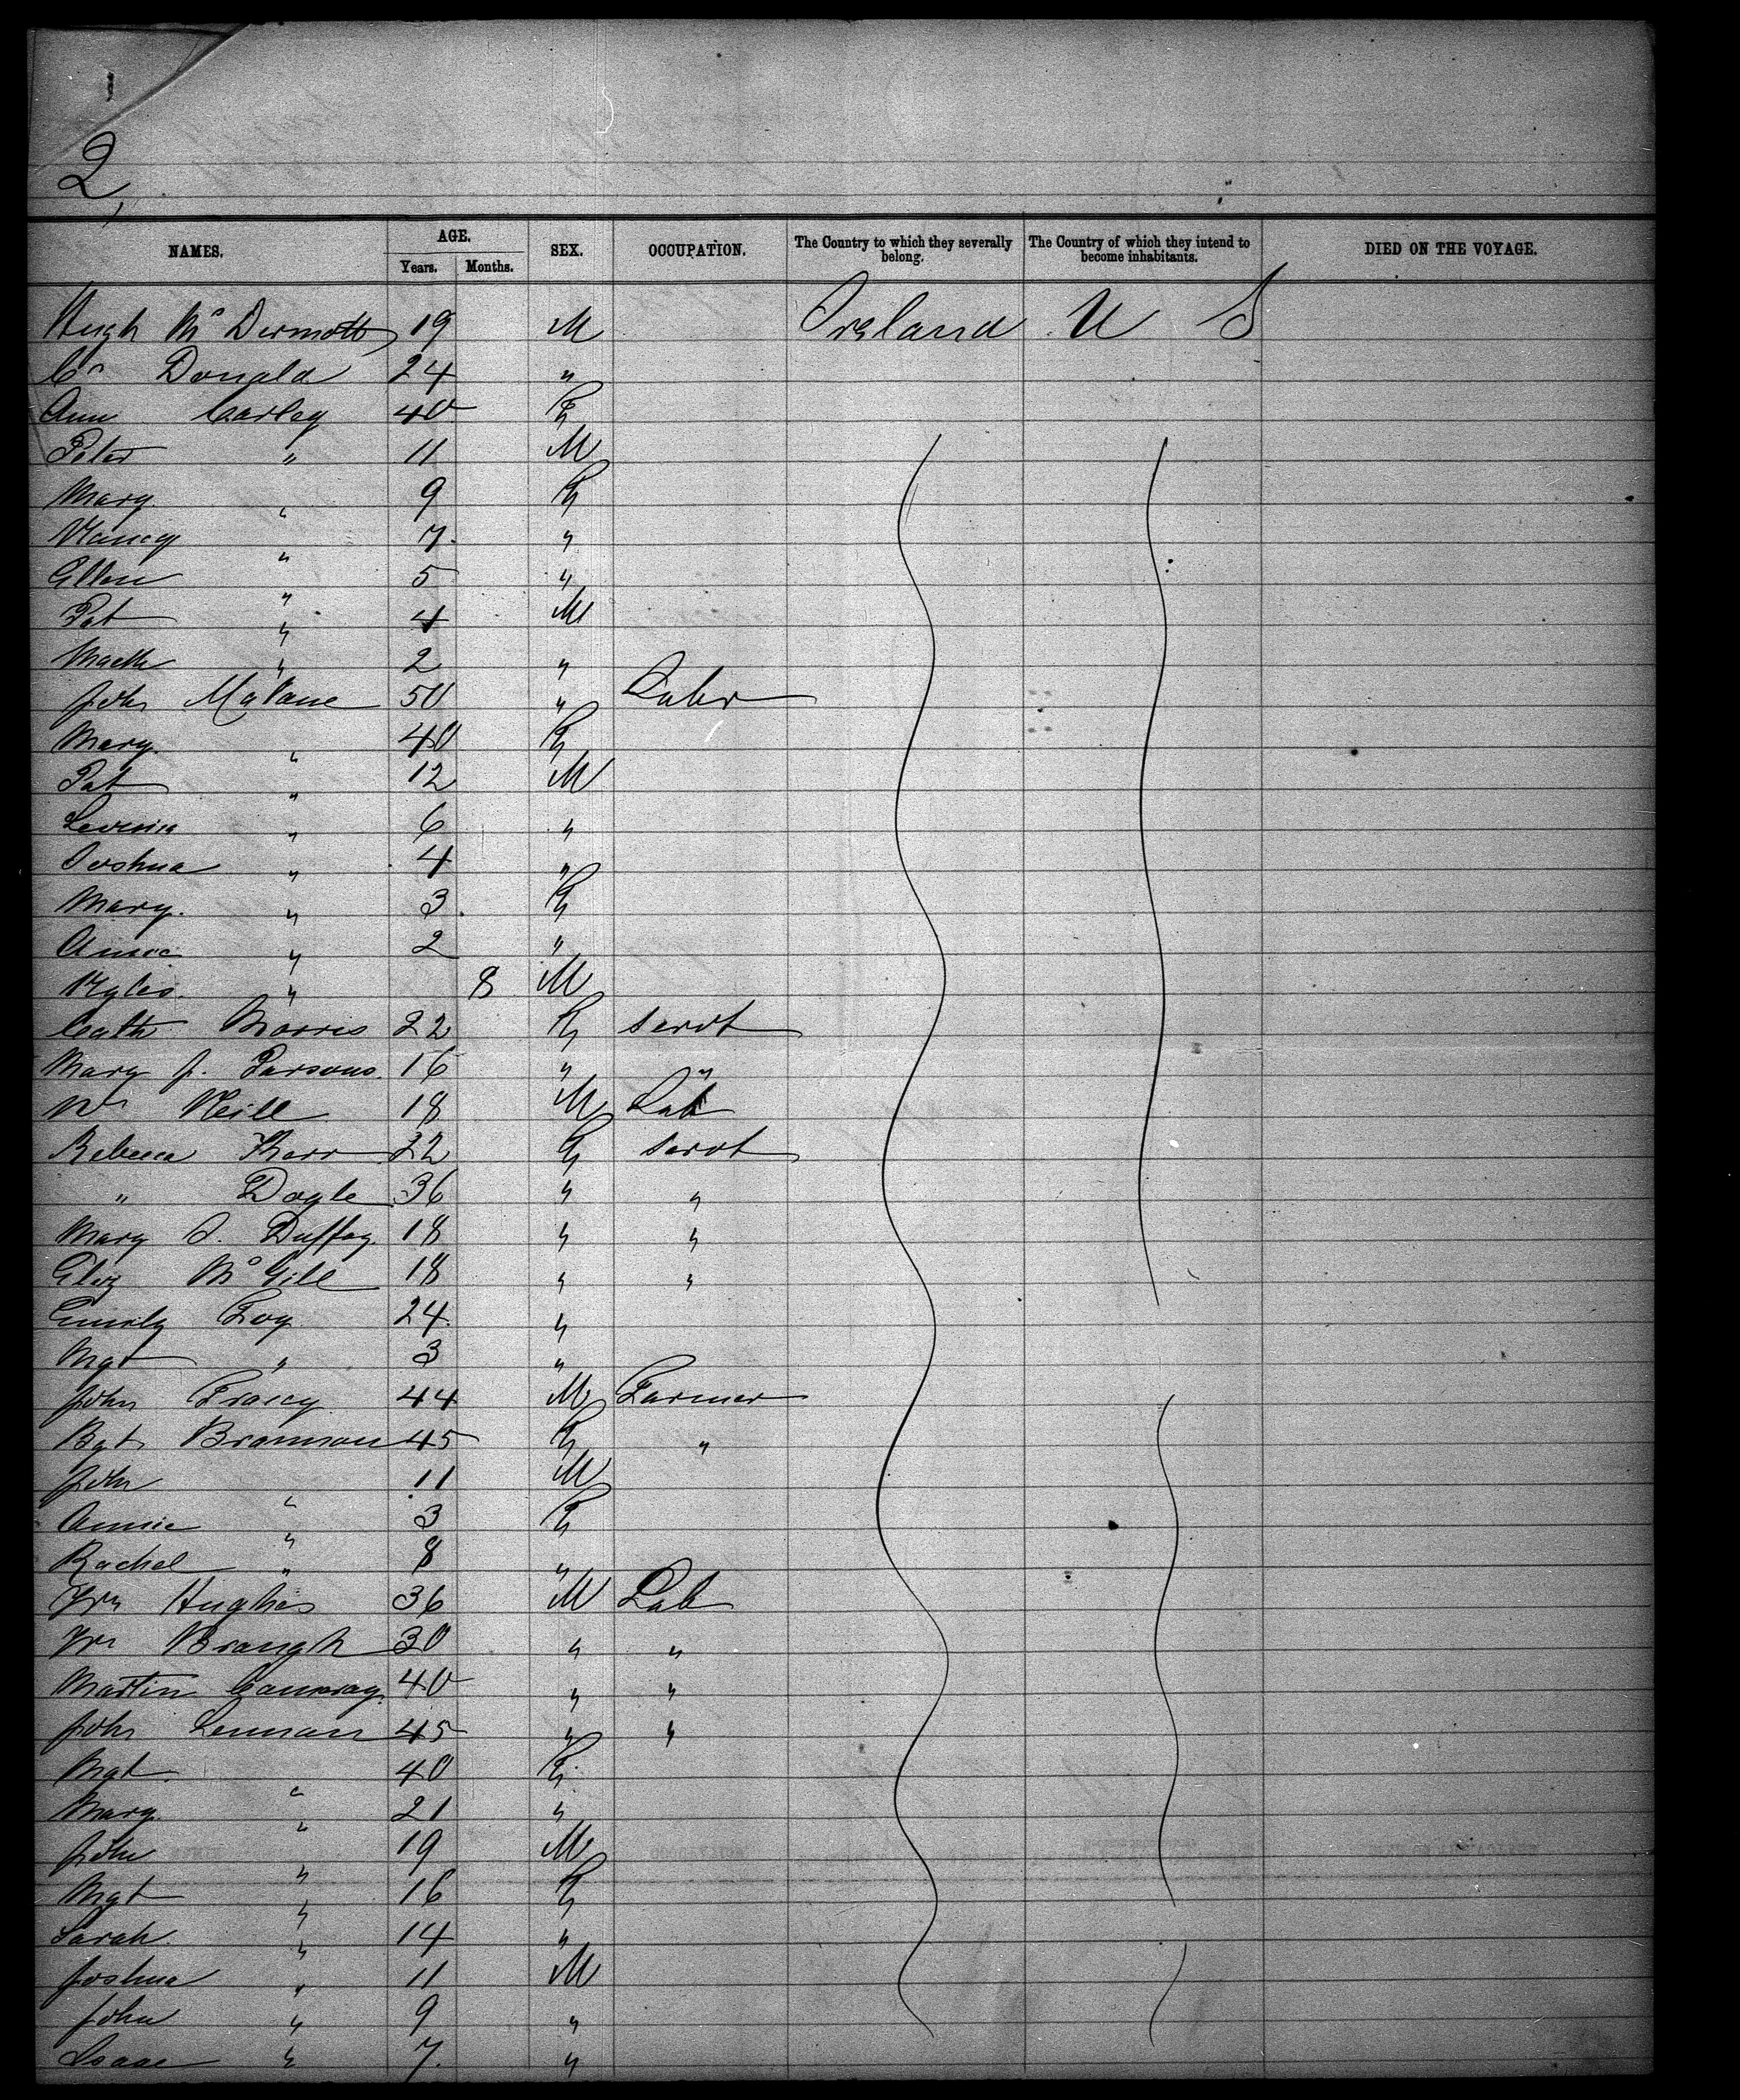 2,
NAMES. AGE. Years. Months. SEX. OCCUPATION. The Country to which they severally belong. The Country of which they intend to become inhabitants. DIED ON THE VOYAGE.
Hugh McDermott 19 M Ireland U S
Donald 24 "
Ann Carley 40 F
Peter " 11 M
Mary " 9 F
Nancy " 7 "
Ellen " 5 "
Pat " 4 M
" 2 "
John 50 " Labr
Mary " 40 F
Pat " 12 M
" 6 "
Joshua " 4 "
Mary " 3 F
Annie " 2 "
Myles " 8 M
Cath Morris 22 F servt
Mary J. Parsons 16 " "
Wm Neill 18 M Lab
Rebecca Kerr 22 F servt
" Dogle 36 " "
Mary J. Duffey 18 " "
Eliz McGill 18 " "
Emily Foy 24 "
Mgt " 3 "
John Tracey 44 M Farmer
Bgt Brannon 45 F "
John " 11 M
Annie " 3 F
Rachel " 8 "
Wm Hughes 36 M Lab
Wm 30 " "
Martin Conway 40 " "
John Lennan 45 " "
Mgt " 40 F
Mary " 21 "
John " 19 M
Mgt " 16 F
Sarah " 14 "
Joshua " 11 M
John " 9 "
Isaac " 7 "